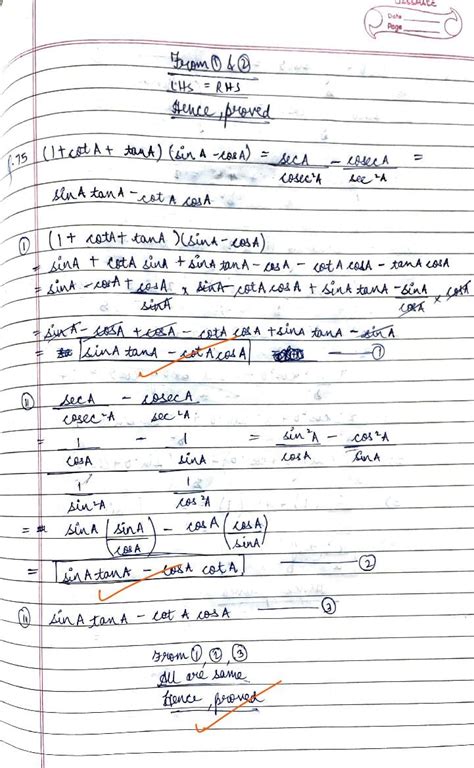 classmate
Date
Page
From ① & ②
LHS = RHS
Hence, proved
75 (1+cotA + tanA) (sinA - cosA) = secA/cosec²A - cosecA/sec²A =
sinA tanA - cotA cosA
① (1 + cotA + tanA)(sinA - cosA)
= sinA + cotA sinA + sinA tanA - cosA - cotA cosA - tanA cosA
= sinA - cosA + cosA/sinA × sinA - cotA cosA + sinA tanA - sinA/cosA × cosA
= sinA - cosA + cosA - cotA cosA + sinA tanA - sinA
= sinA tanA - cotA cosA ①
② secA/cosec²A - cosecA/sec²A
= 1/cosA/1/sin²A - 1/sinA/1/cos²A = sin²A/cosA - cos²A/sinA
= sinA (sinA/cosA) - cosA (cosA/sinA)
= sinA tanA - cosA cotA ②
sinA tanA - cotA cosA ③
From ①, ②, ③
All are same
Hence, proved